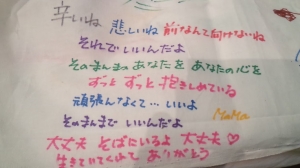 辛いね 悲しいね 前なんて向けないね
それでいいんだよ
そのまんまのあなたを あなたの心を
ずっと ずっと 抱きしめている
頑張んなくて…いいよ
そのまんまで いいんだよ
MaMa
大丈夫 そばにいるよ 大丈夫♡
生きていてくれて ありがとう